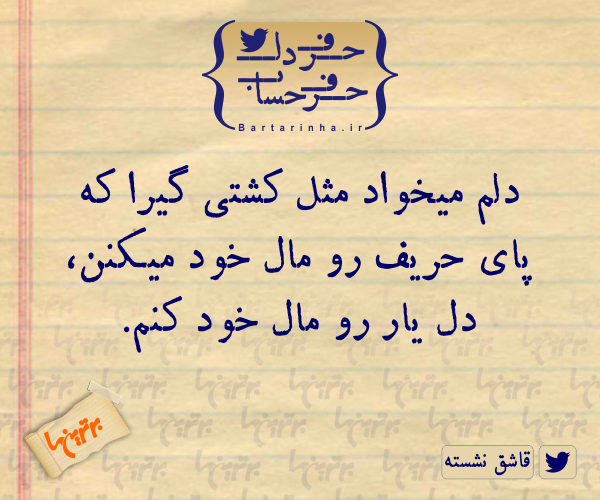 حرف دل
حرف حساب
Bartarinha.ir
دلم میخواد مثل کشتی گیرا که
پای حریف رو مال خود میکنن،
دل یار رو مال خود کنم.
برترینها
قاشق نشسته